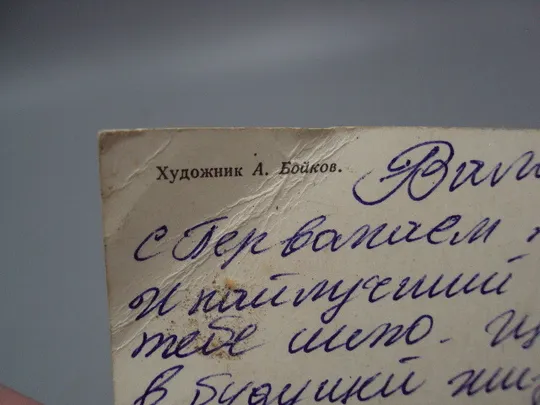 Художник А. Бойков.
Валя
с Первомаем
и найлучший
тебе
в будущей